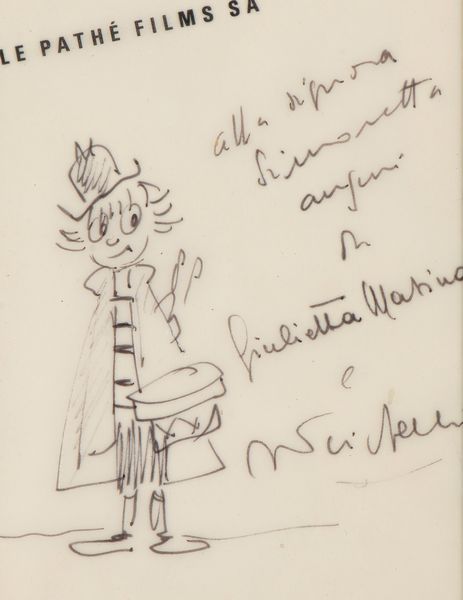 LE PATHÉ FILMS SA
alla signora
Simonetta
auguri
di
Giulietta Masina
e